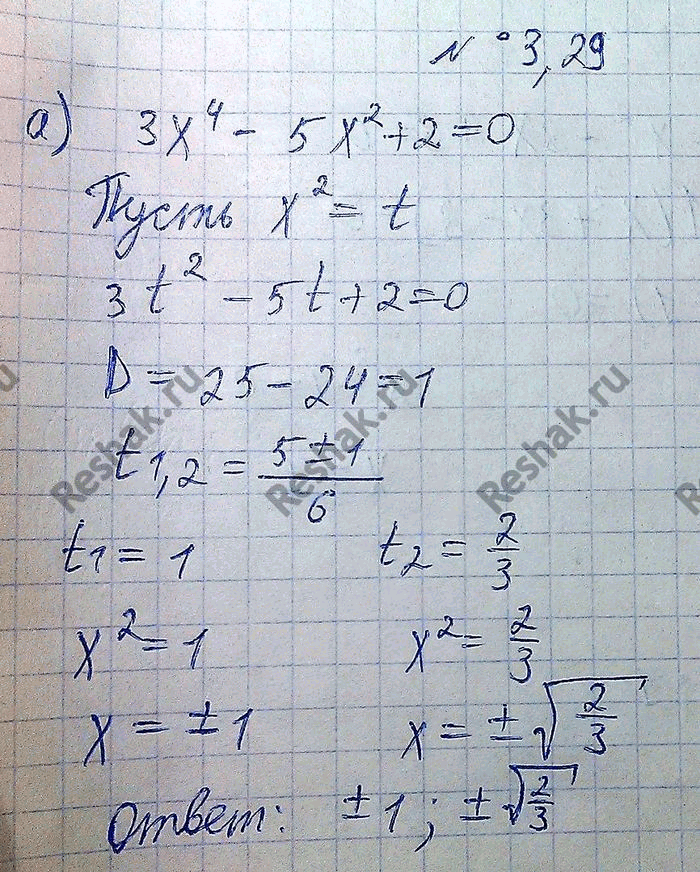 N°3,29
а) 3x⁴ - 5x² + 2 = 0
Пусть x² = t
3t² - 5t + 2 = 0
D = 25 - 24 = 1
t₁,₂ = (5 ± 1)/6
t₁ = 1 t₂ = 2/3
x² = 1 x² = 2/3
x = ±1 x = ±√(2/3)
Ответ: ±1; ±√(2/3)
Reshak.ru
Reshak.ru
Reshak.ru